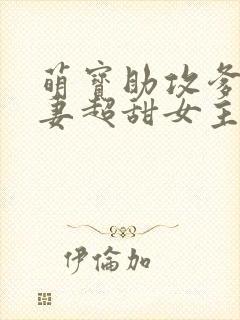 萌寶助攻爹
妻超甜女主
伊倫加